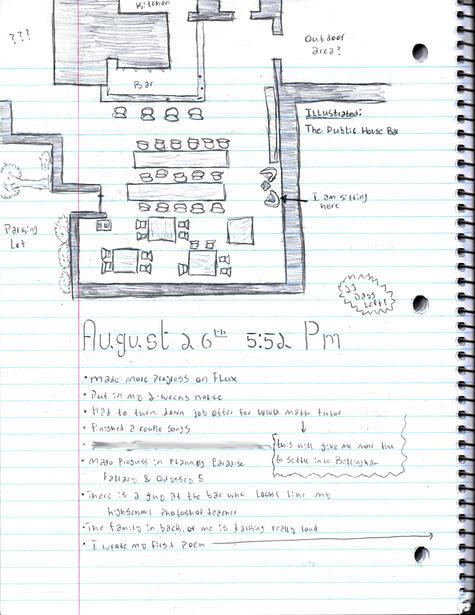 Kitchen
???
Outdoor
area?
Bar
Illustrated:
The Public House Bar
I am sitting
here
Parking
Lot
Days
Left!
August 26th 5:52 Pm
• made more progress on Flux
• Put in my 2-weeks notice
• Had to turn down job offer for WWU math tutor
• Finished 2 songs
this will give me more time
to settle into Bellingham
• Made Progress in Planning Paradise
Fallacy & Odyssey 5
• There is a guy at the bar who looks like my
highschool Photoshop teacher
• The family in back of me is talking really loud
• I wrote my first poem